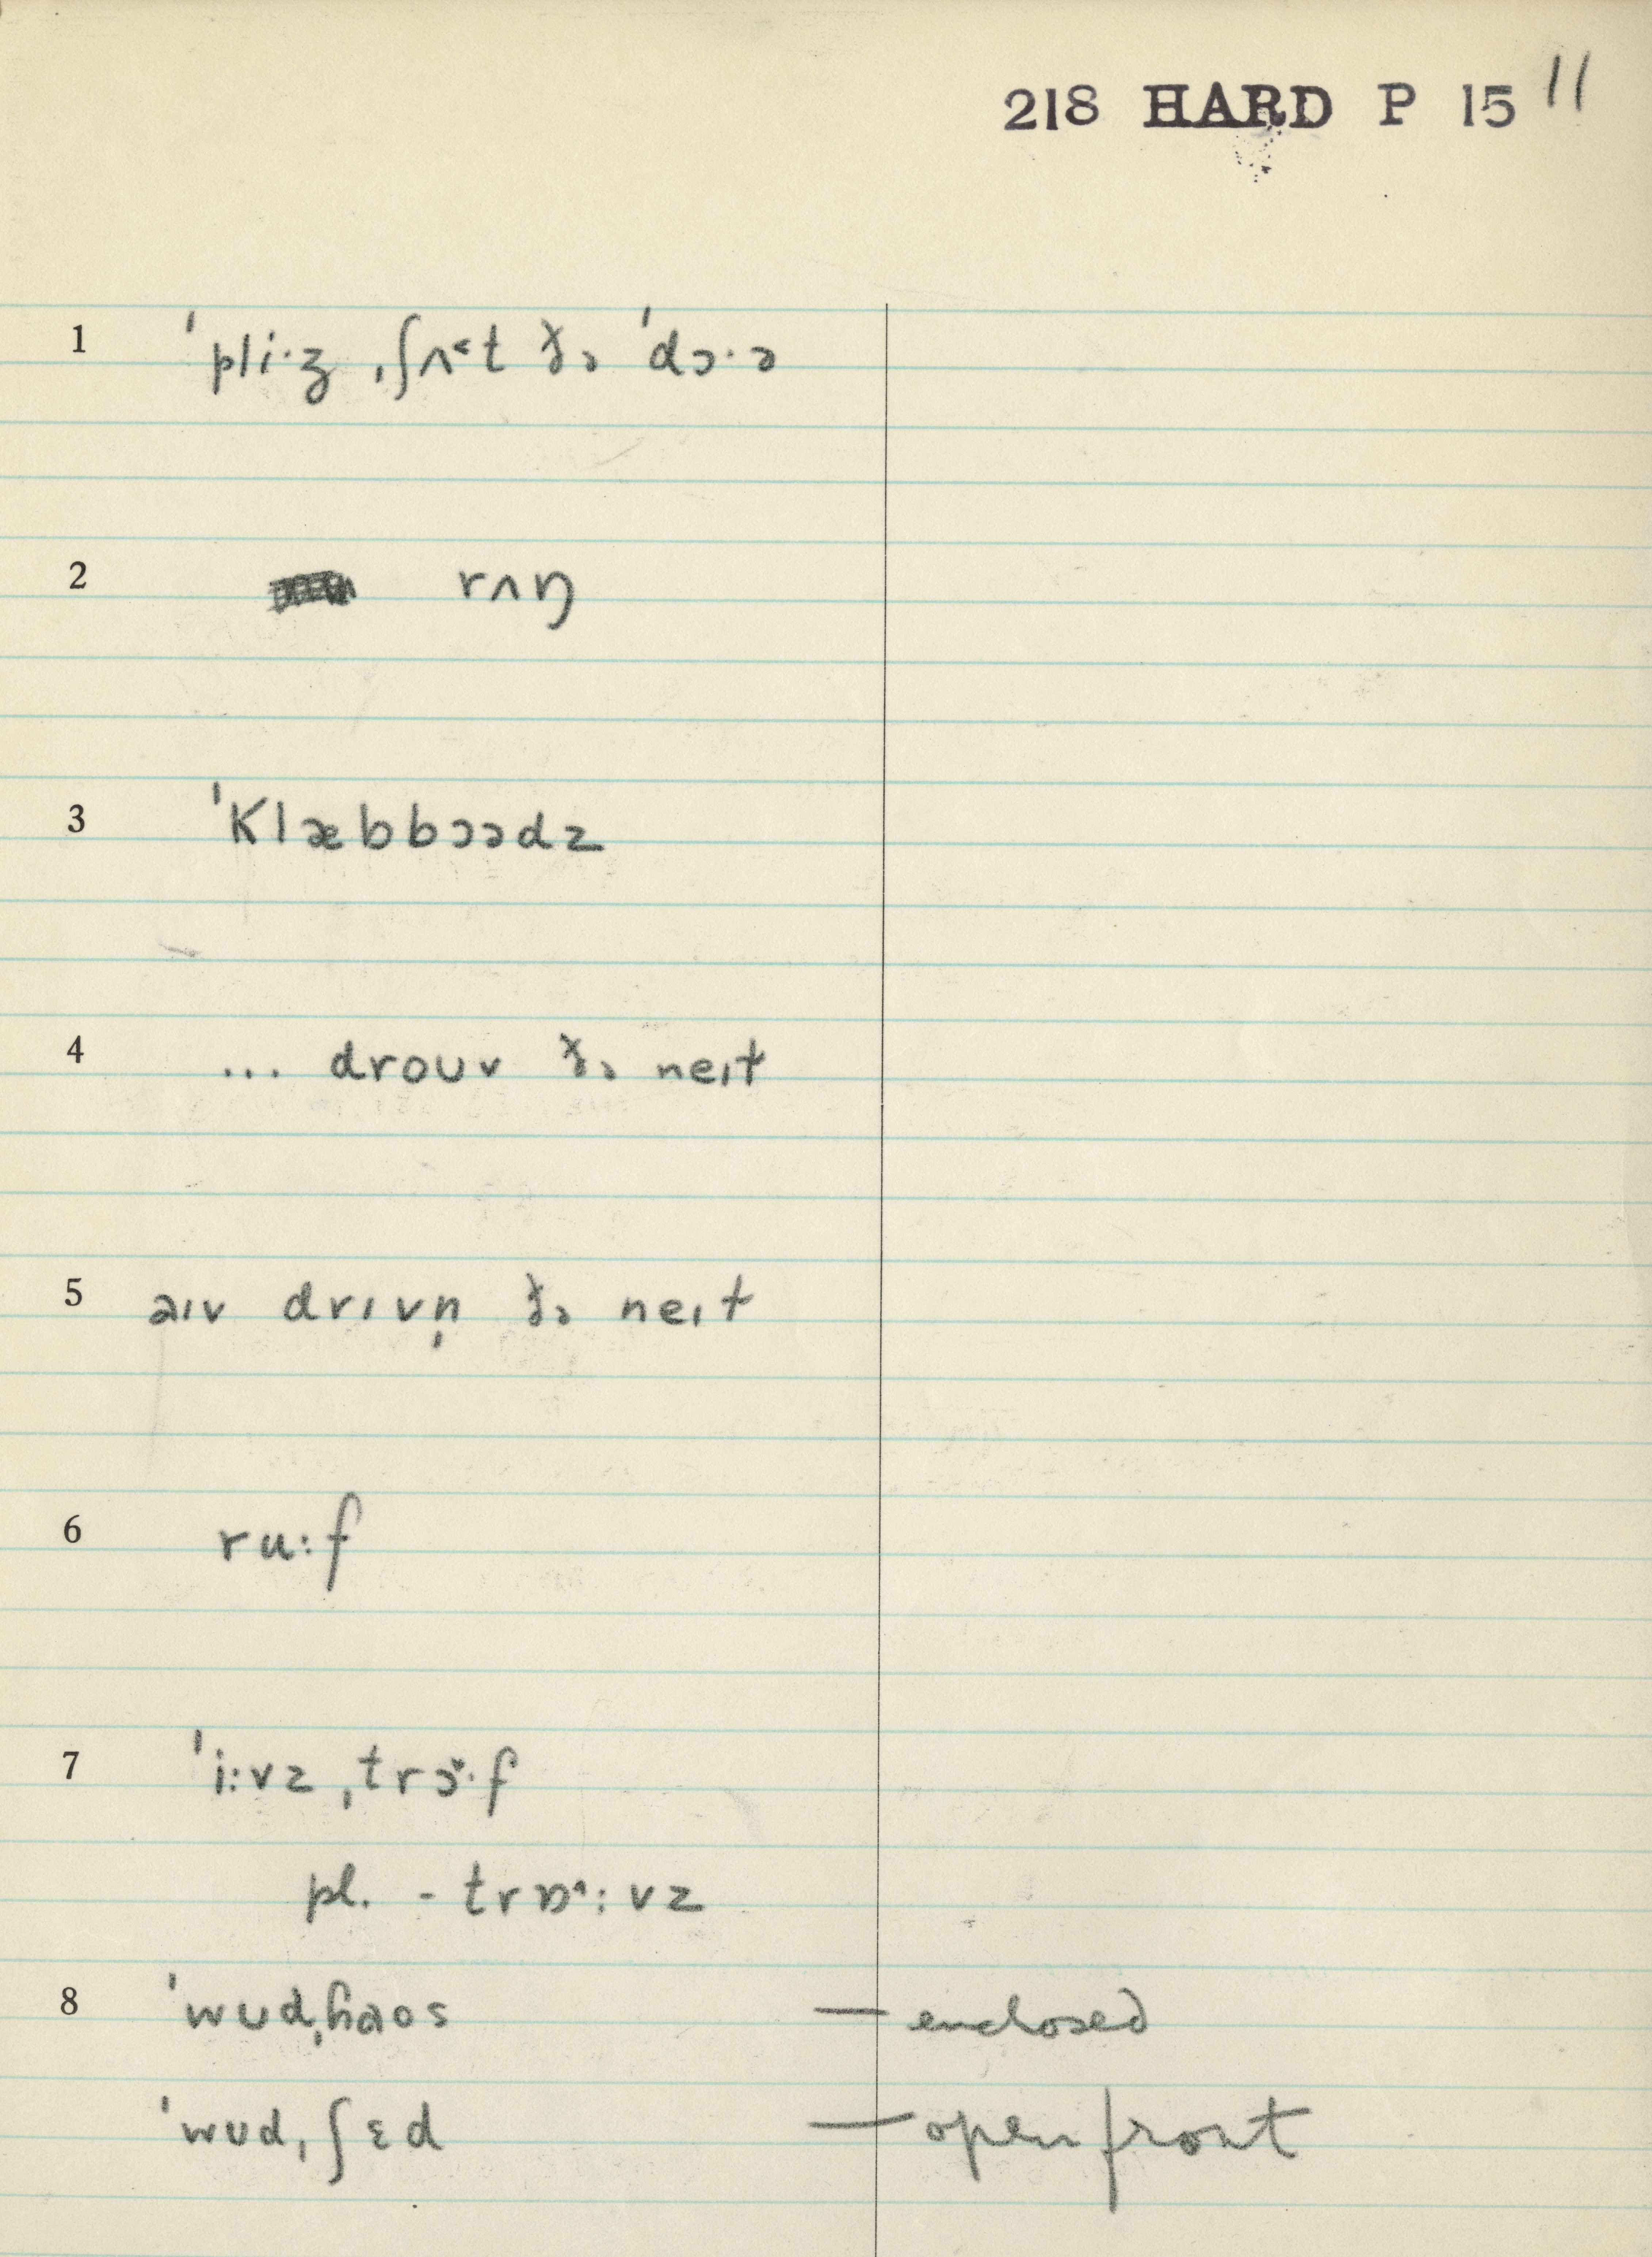 218 HARD P 15 11
1 ˈpli·z ˌʃʌ˂t ðə ˈdɔ·ə
2 rʌŋ
3 ˈklæbbɔədz
4 ... drouv ðə neɪt
5 aɪv drɪvn̩ ðə neɪt
6 ru:f
7 ˈi:vz ˌtrɔ̌·f
pl. - trɒ˄:vz
8 ˈwudˌɦaos — enclosed
ˈwudˌʃɛd — open front